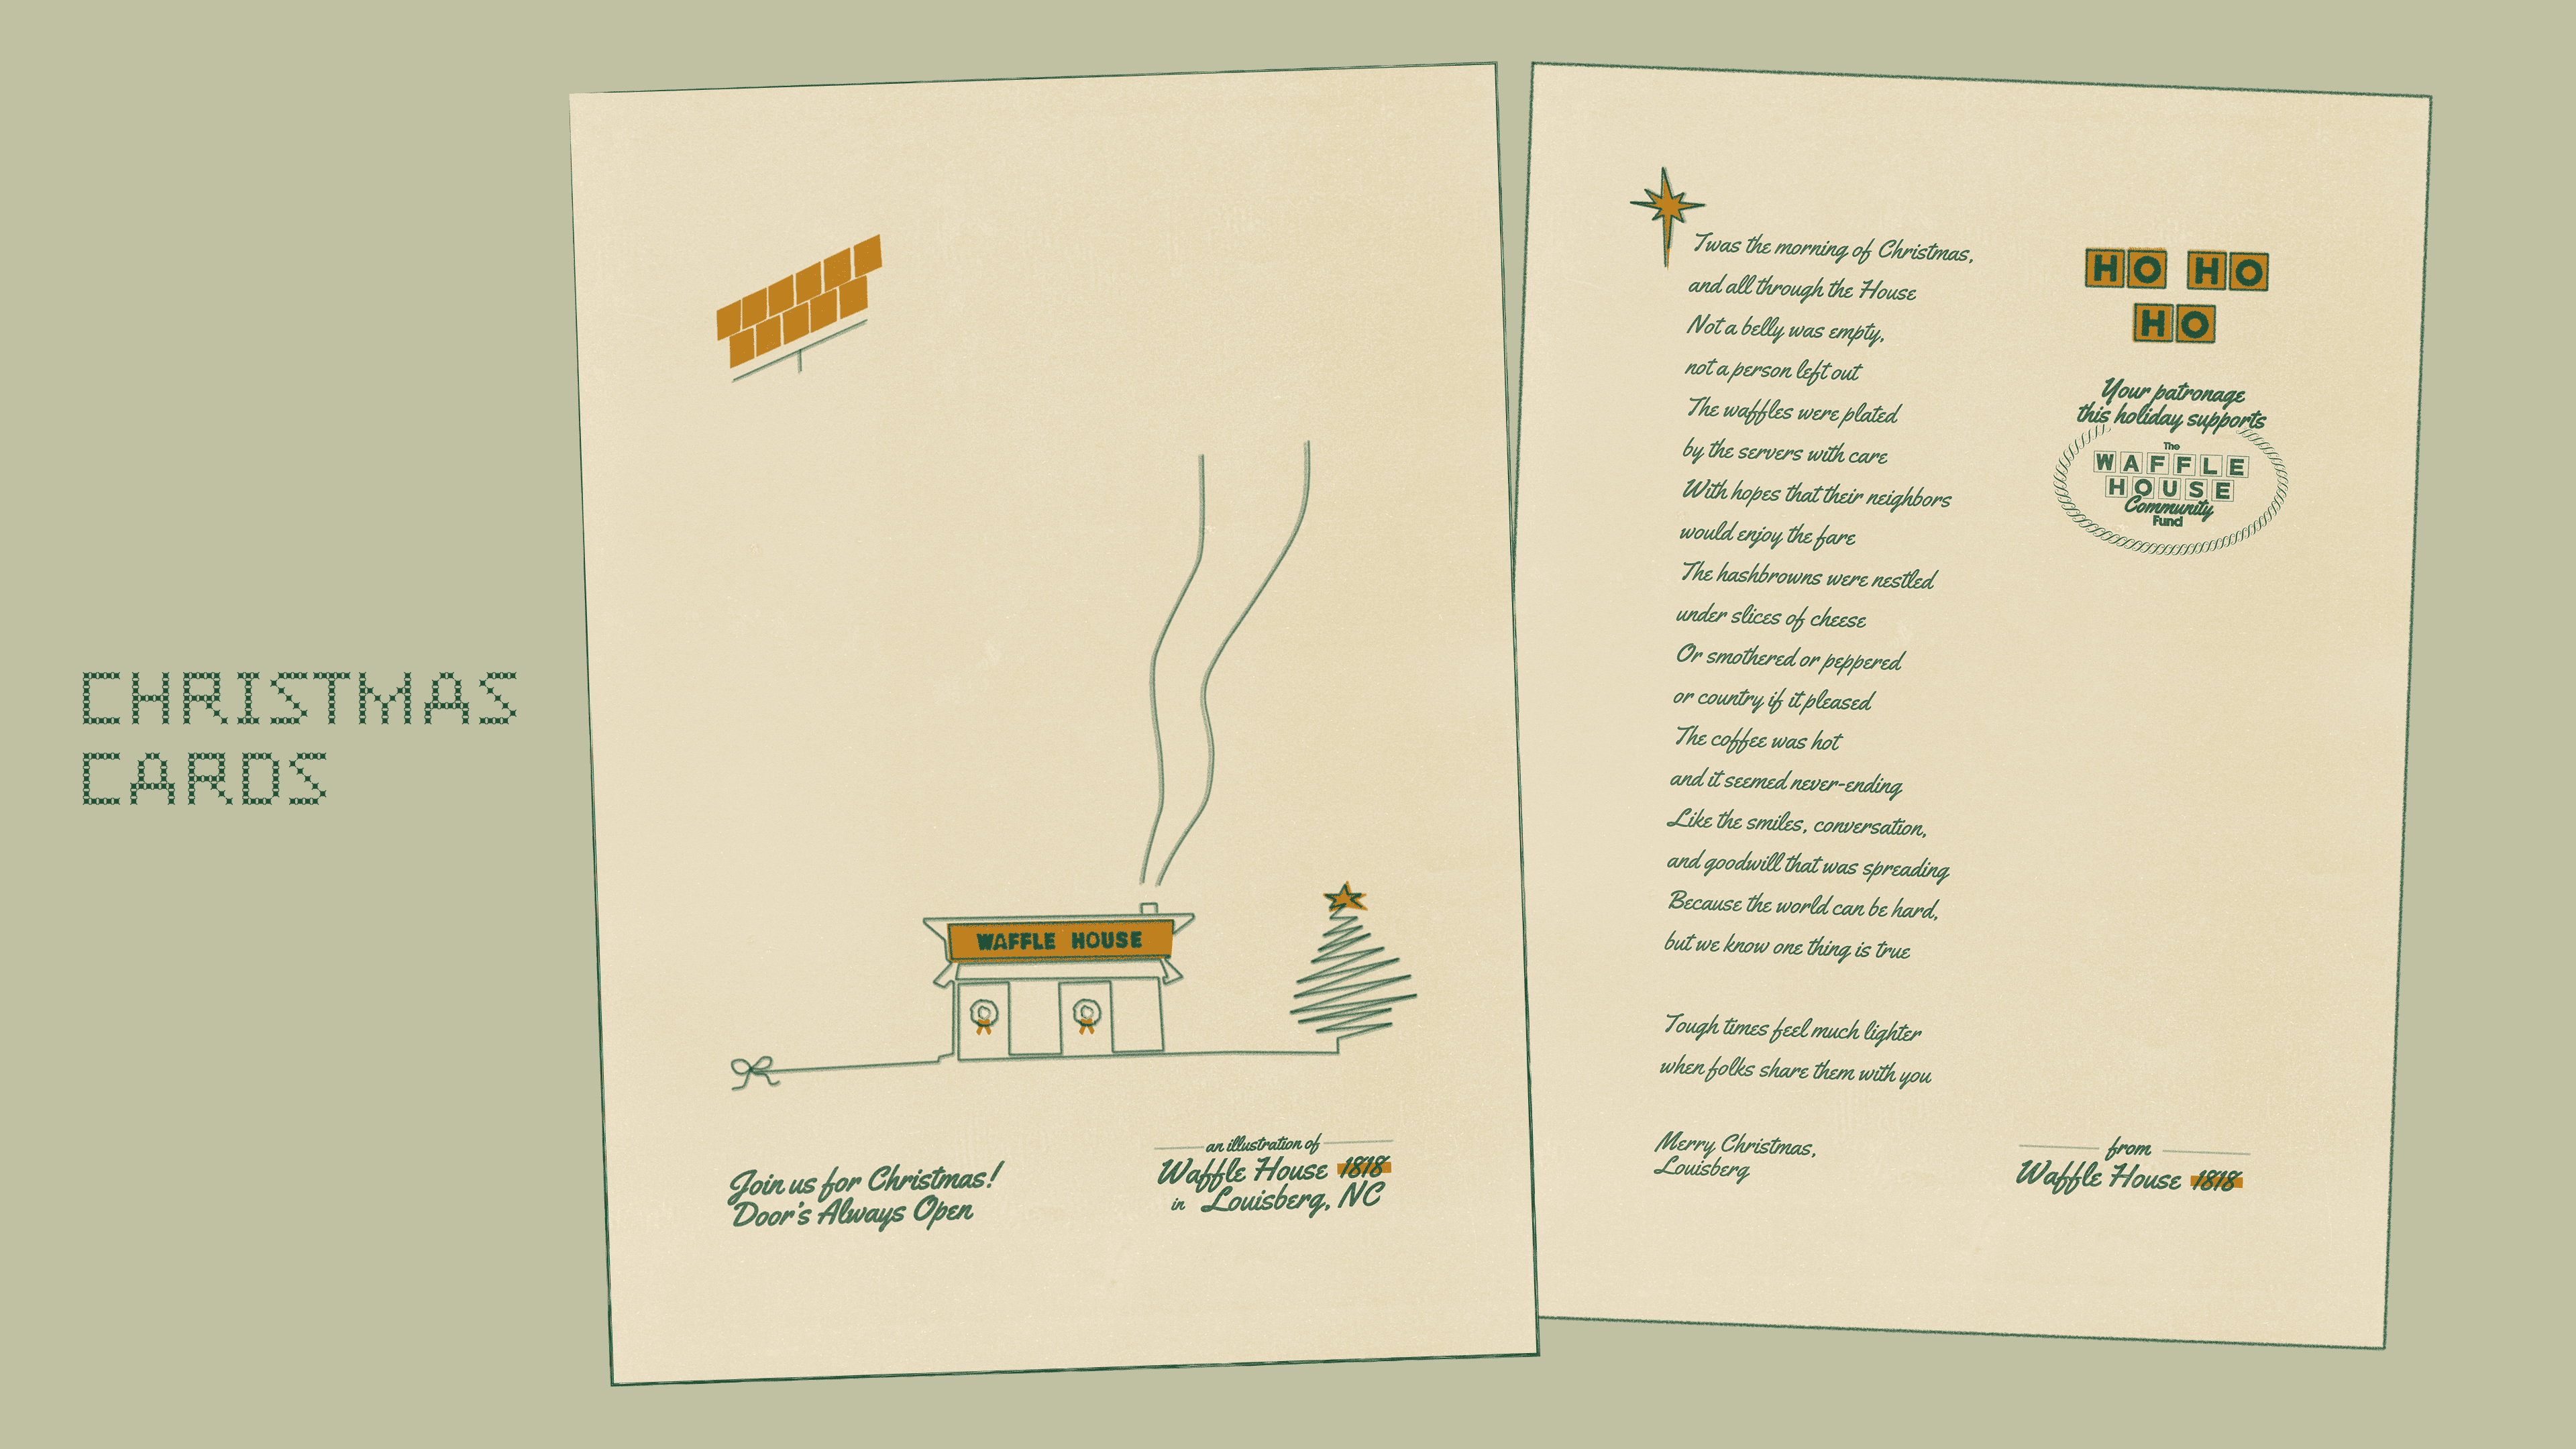 CHRISTMAS
CARDS
WAFFLE HOUSE
Join us for Christmas!
Door's Always Open
an illustration of
Waffle House 1818
in Louisberg, NC
Twas the morning of Christmas,
and all through the House
Not a belly was empty,
not a person left out
The waffles were plated
by the servers with care
With hopes that their neighbors
would enjoy the fare
The hashbrowns were nestled
under slices of cheese
Or smothered or peppered
or country if it pleased
The coffee was hot
and it seemed never-ending
Like the smiles, conversation,
and goodwill that was spreading
Because the world can be hard,
but we know one thing is true
Tough times feel much lighter
when folks share them with you
Merry Christmas,
Louisberg
HO HO
HO
Your patronage
this holiday supports
The
WAFFLE
HOUSE
Community
Fund
from
Waffle House 1818